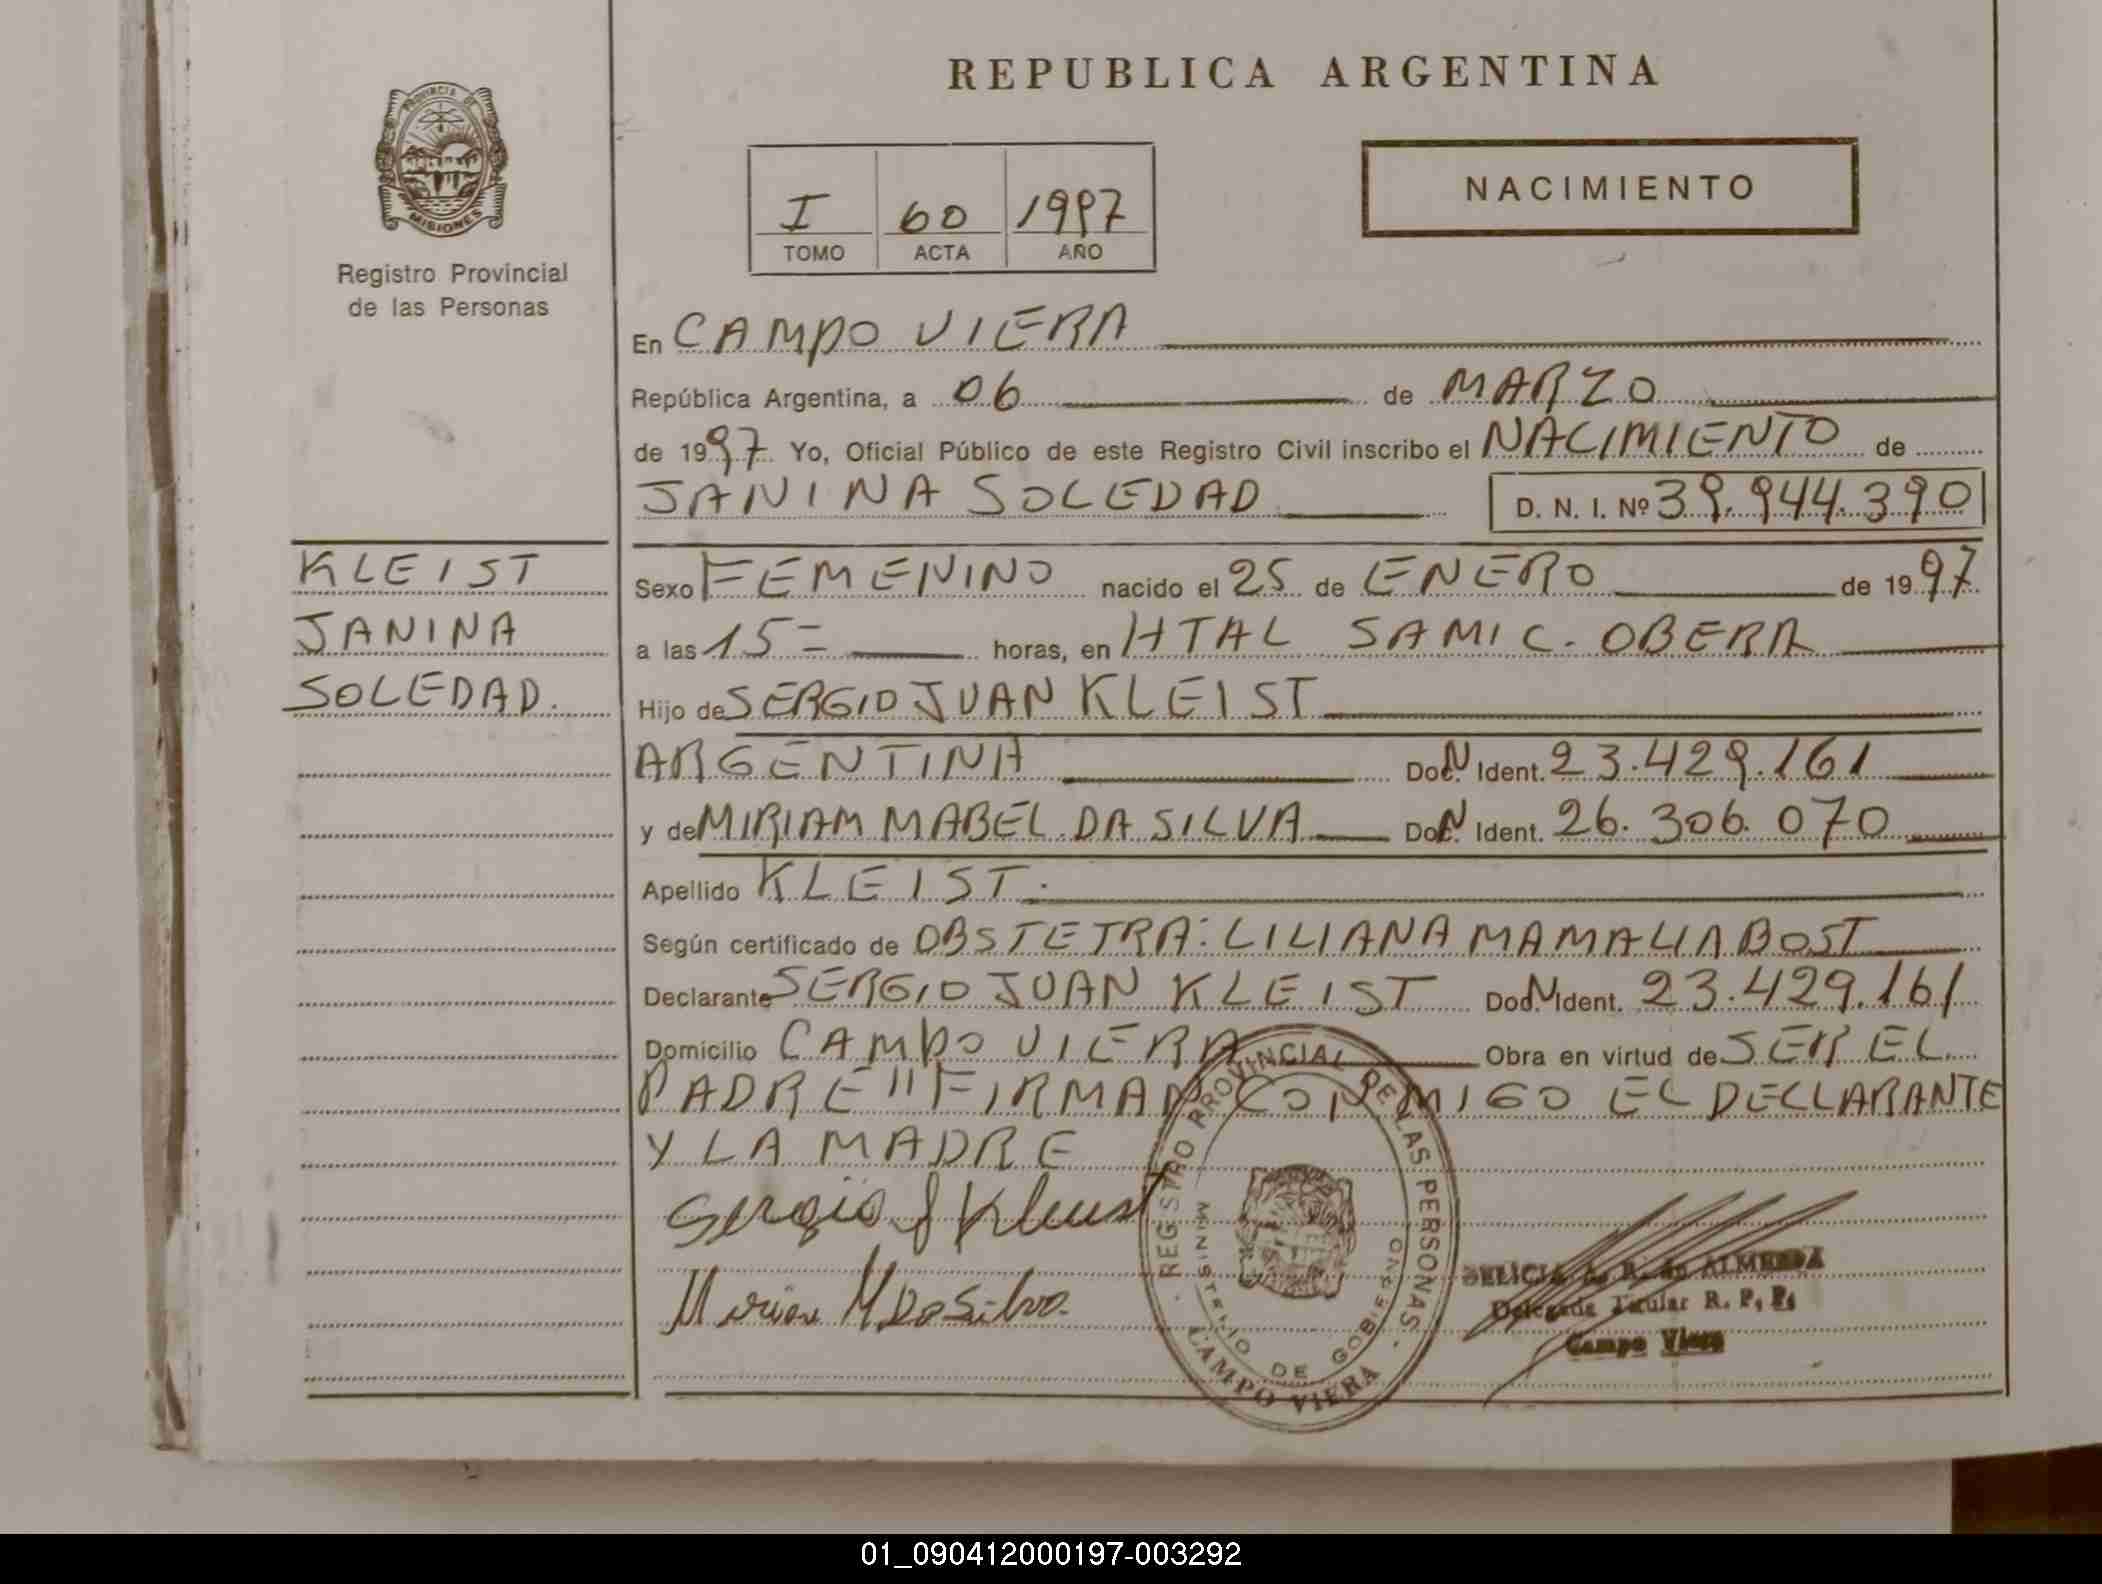 REPUBLICA ARGENTINA
PROVINCIA DE
MISIONES
Registro Provincial
de las Personas
I 60 1997
TOMO ACTA AÑO
NACIMIENTO
En CAMPO VIERA
República Argentina, a 06 de MARZO
de 1997 Yo, Oficial Público de este Registro Civil inscribo el NACIMIENTO de
JANINA SOLEDAD D. N. I. Nº 39.944.390
KLEIST
JANINA
SOLEDAD.
Sexo FEMENINO nacido el 25 de ENERO de 1997
a las 15= horas, en HTAL SAMIC. OBERA
Hijo de SERGIO JUAN KLEIST
ARGENTINA Doc. N Ident. 23.429.161
y de MIRIAM MABEL DA SILVA Doc. N Ident. 26.306.070
Apellido KLEIST.
Según certificado de OBSTETRA: LILIANA MAMALIA BOST
Declarante SERGIO JUAN KLEIST Doc. N Ident. 23.429.161
Domicilio CAMPO VIERA Obra en virtud de SER EL
PADRE " FIRMAN CONMIGO EL DECLARANTE
Y LA MADRE
Sergio J Kleist
Miriam M Da Silva.
REGISTRO PROVINCIAL DE LAS PERSONAS
MINISTERIO DE GOBIERNO
CAMPO VIERA
de ALMEIDA
Delegada Titular R. P. P.
Campo Viera
01_090412000197-003292